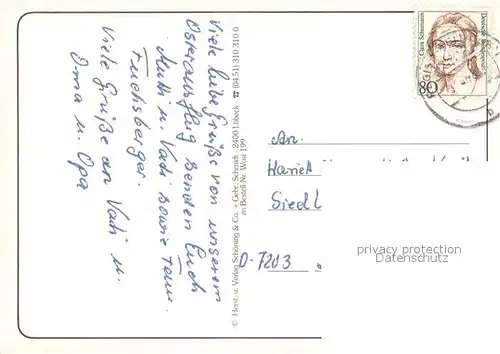 Viele liebe Grüße von unserem
Osterausflug senden Euch
Mutti u. Vati sowie Fam.
Fuchsberger.
Viele Grüße an Vati u.
Oma u. Opa
© Herst. u. Verlag Schöning & Co. + Gebr. Schmidt · 2400 Lübeck · ☎ (0451) 310 310 0
zu Bestell-Nr. Wust 199
Clara Schumann
Deutsche Bundespost
80
b
An.
Siedl
D-7203
privacy protection
AKPOOL.DE